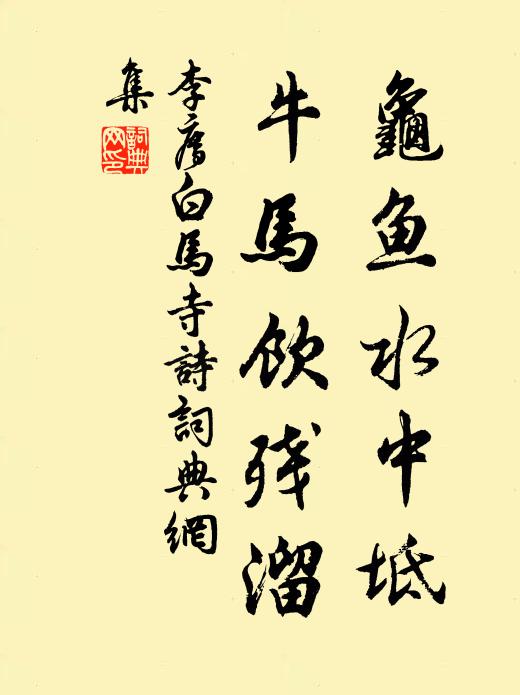 龜魚水中坻
牛馬飲残溜
李廌白馬寺詩詞典網
集
詞典網印